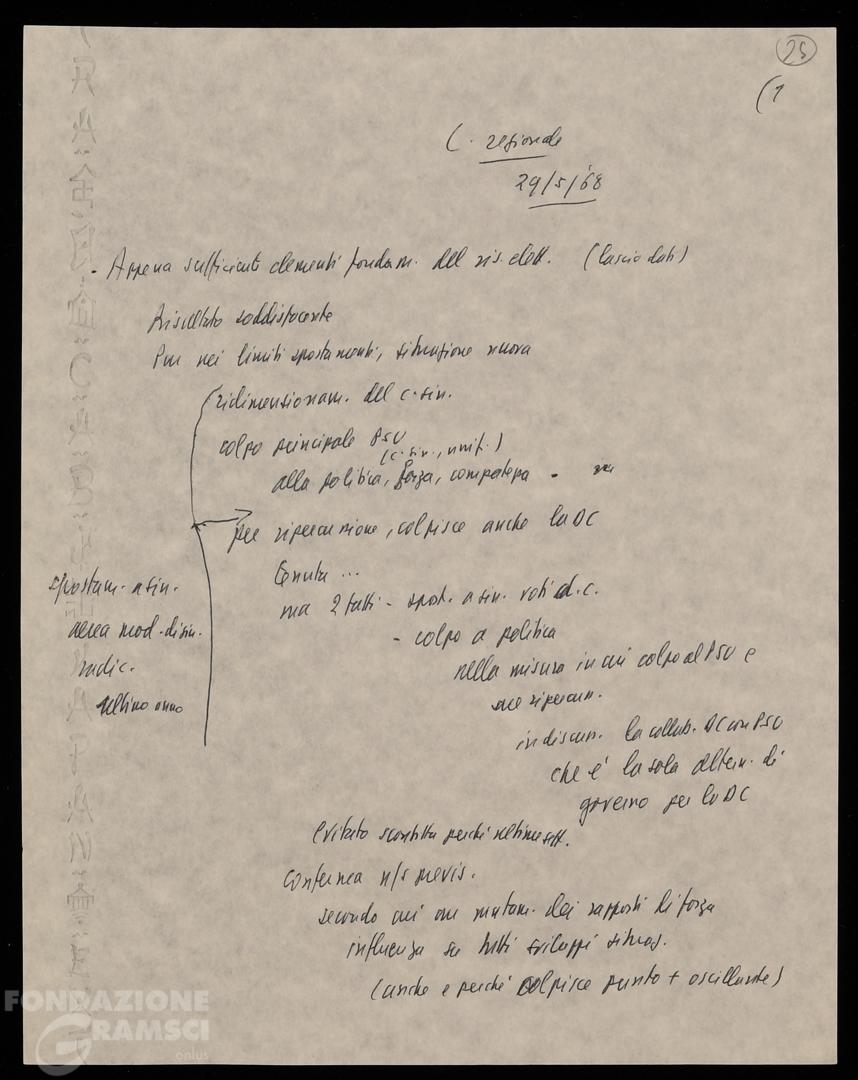 25
(1
C. regionale
29/5/68
- Appena sufficienti elementi fondam. del ris. elett. (lascio dati)
Risultato soddisfacente
Pur nei limiti spostamenti, situazione nuova
ridimensionam. del c. sin.
colpo principale PSU
(c. sin., unif.)
alla politica, forza, compattezza -
per ripercussione, colpisce anche la DC
Tenuta ...
ma 2 fatti - spost. a sin. voti d.c.
- colpo a politica
nella misura in cui colpo al PSU e
sue ripercuss.
in discuss. la collab. DC con PSU
che è la sola altern. di
governo per la DC
spostam. a sin.
radic.
ultimo anno
Evitato sconfitta perché ultime sett.
conferma n/s previs.
secondo cui un mutam. dei rapporti di forza
influenza su tutti sviluppi situaz.
(anche e perché colpisce punto + oscillante)
FONDAZIONE
GRAMSCI
onlus